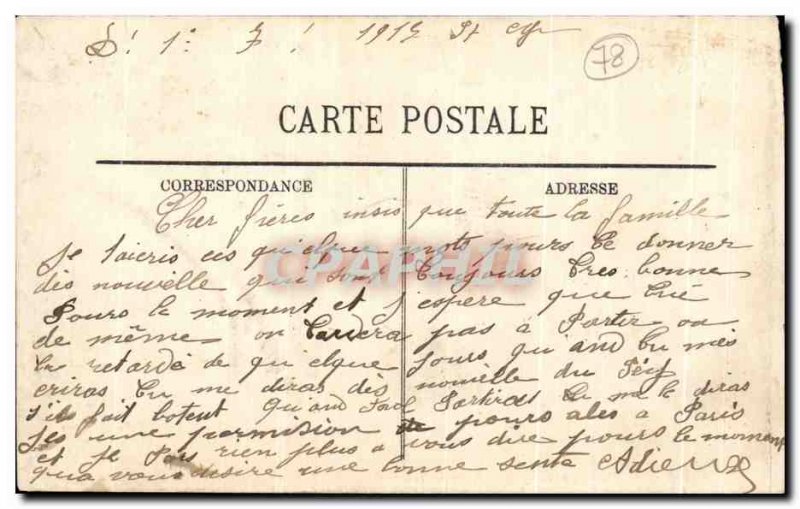 1915 St Cyr
78
CARTE POSTALE
CORRESPONDANCE
ADRESSE
Cher frères insis que toute la famille
Je ecris ces quelque mots pours te donner
des nouvelle qui sont toujours tres bonne
Pours le moment et j'espere que
de même on tardera pas à Partir on
la retardé de qu elque jours qu and tu
ecriras tu me diras des nouvelle du
s'il fait quand Partiras tu me le diras
une permision de pours ales a Paris
et je rien plus a vous dire pours le moment
qua vous disire une bonne senté Adieu
CPAPHIL